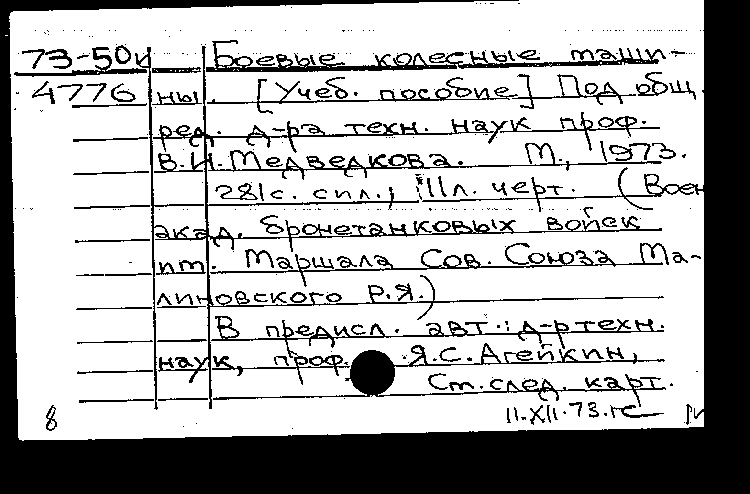 73-50и Боевые колесные маши-
4776 ны. [Учеб. пособие] Под общ.
ред. д-ра техн. наук проф.
В.И. Медведкова. М., 1973.
281с. с ил.; 11л. черт. (Воен
акад. бронетанковых войск
им. Маршала Сов. Союза Ма-
линовского Р.Я.)
В предисл. авт.: д-р техн.
наук, проф. Я.С. Агейкин,
См. след. карт.
8 11.XII.73.